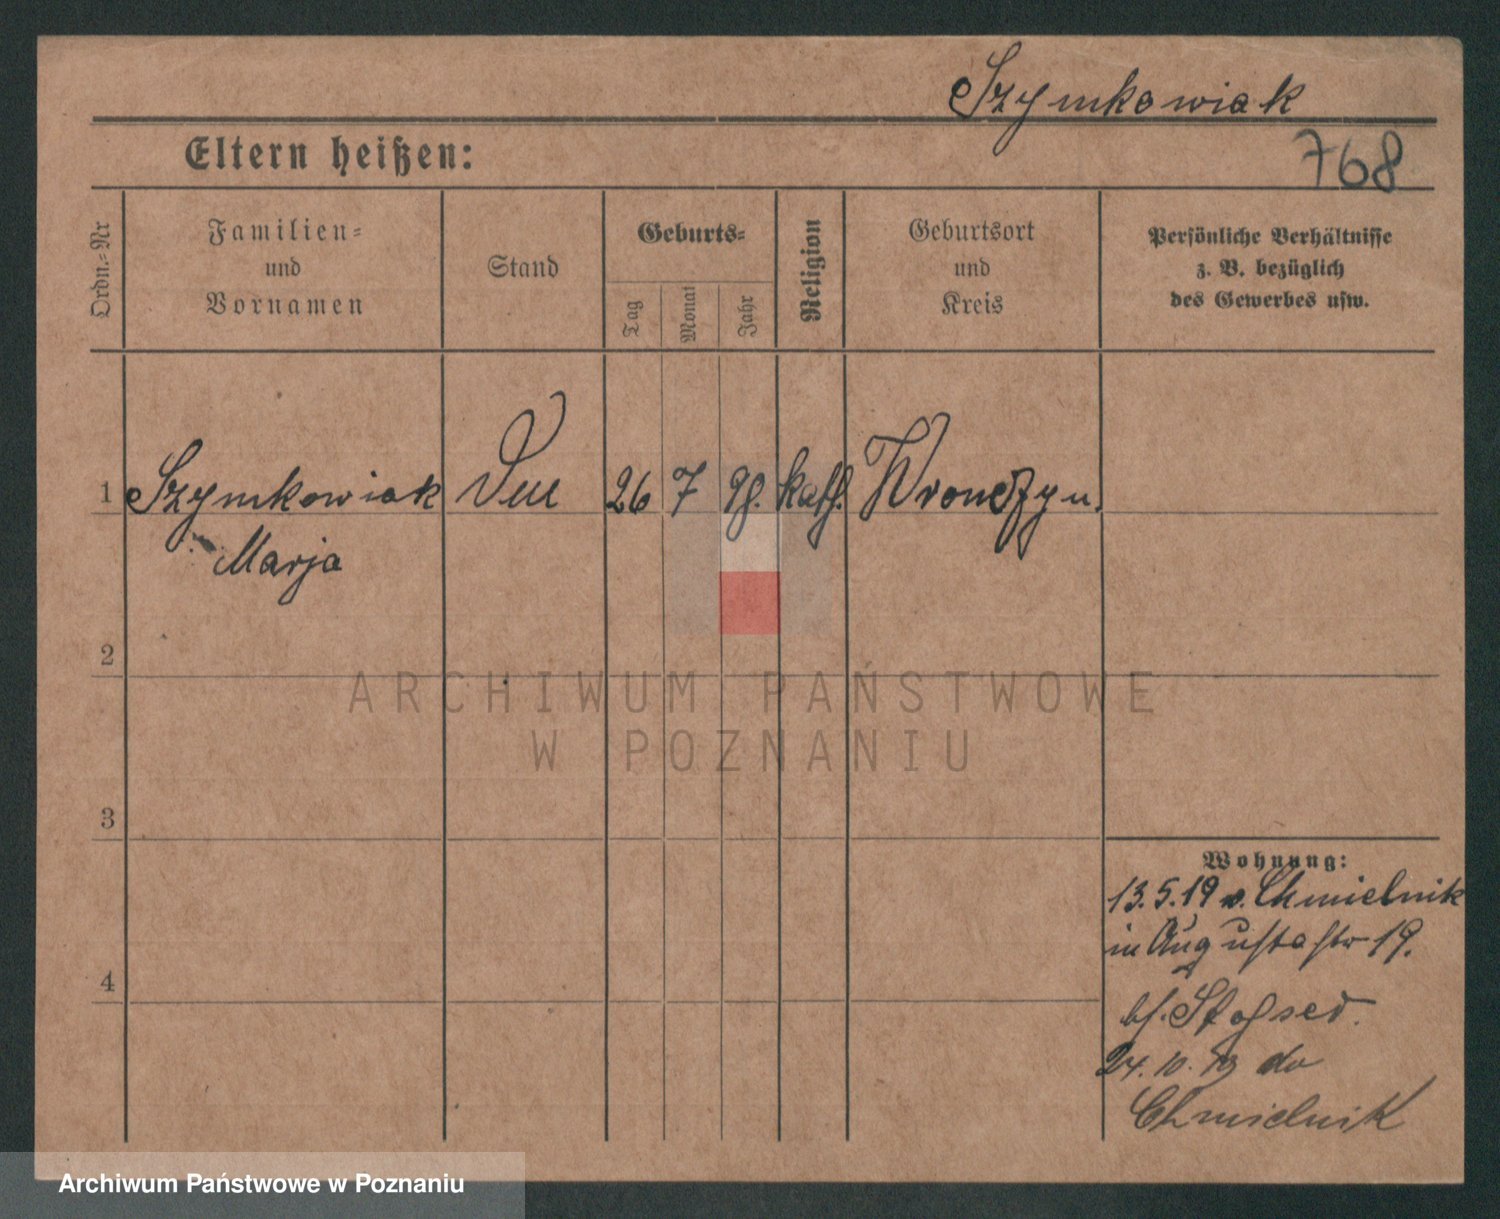 Szymkowiak
768
Eltern heißen:
Ordn.-Nr
Familien-
und
Vornamen
Stand
Geburts-
Tag
Monat
Jahr
Religion
Geburtsort
und
Kreis
Persönliche Verhältnisse
z. B. bezüglich
des Gewerbes usw.
1 Szymkowiak 26 7 98. kath. Wronczyn.
Marja
2
3
4
Wohnung:
13.5.19 v. Chmielnik
in Augustastr 19.
bf.
24.10.19
Chmielnik
ARCHIWUM PAŃSTWOWE
W POZNANIU
Archiwum Państwowe w Poznaniu